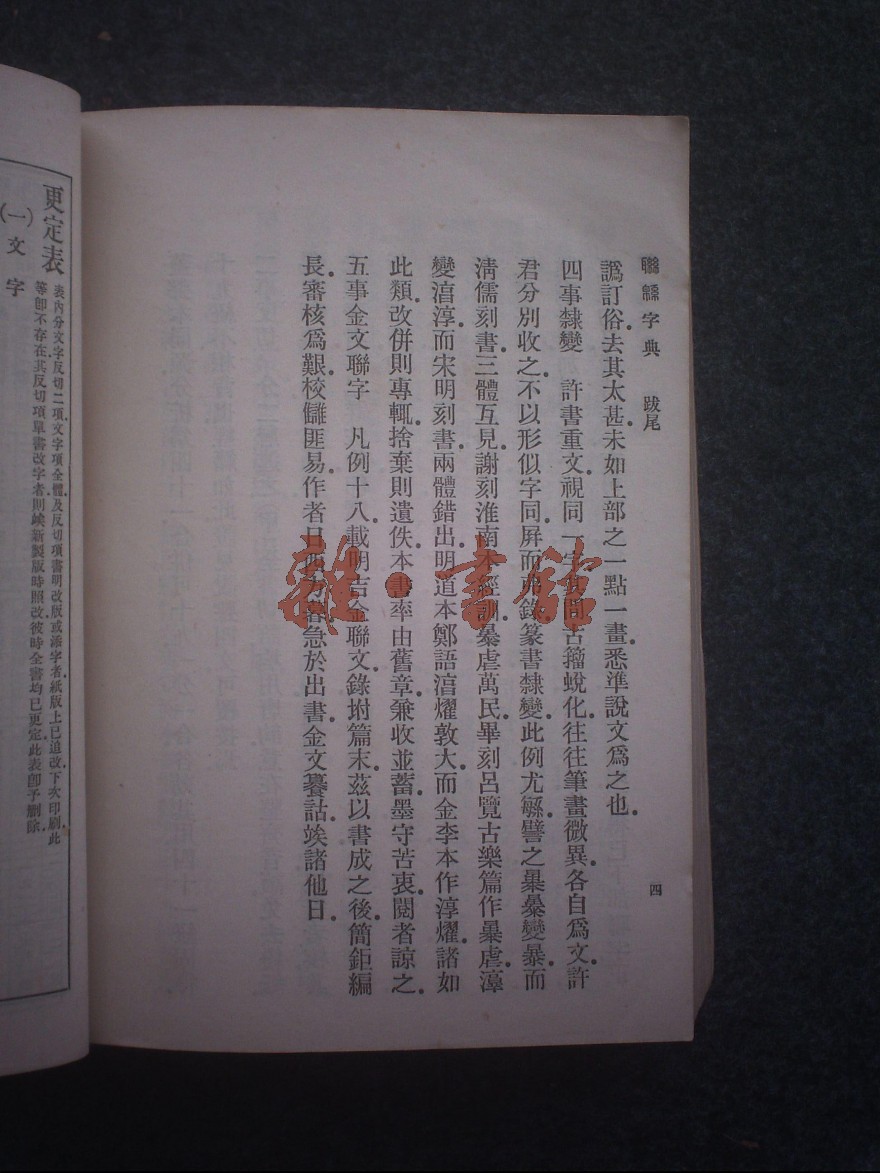 聯緜字典　跋尾
四
譌訂俗。去其太甚。未如上部之一點一畫。悉準說文爲之也。
四事隸變　許書重文。視同一字。古籀蛻化。往往筆畫微異。各自爲文。許
君分別收之。不以形似字同。屏而弗錄。篆書隸變。此例尤緐。譬之㬥㬧變暴。而
淸儒刻書。三體互見。謝刻淮南本經訓。㬧虐萬民。畢刻呂覽古樂篇作㬥虐。
變淳。而宋明刻書。兩體錯出。明道本鄭語淳燿敦大。而金李本作淳燿。諸如
此類。改倂則專輒。捨棄則遺佚。本書率由舊章。兼收並蓄。墨守苦衷。閱者諒之。
五事金文聯字　凡例十八。載明吉金聯文。錄坿篇末。茲以書成之後。簡鉅編
長。審核爲艱。校讎匪易。作者日西方暮。急於出書。金文纂詁。竢諸他日。
雜·書館
更定表
表內分文字反切二項。文字項全體。及反切項書明改版或添字者。紙版上已追改。下次印刷。此
等卽不存在。其反切項單書改字者。則竢新製版時照改。彼時全書均已更定。此表卽予刪除。
(一)文字